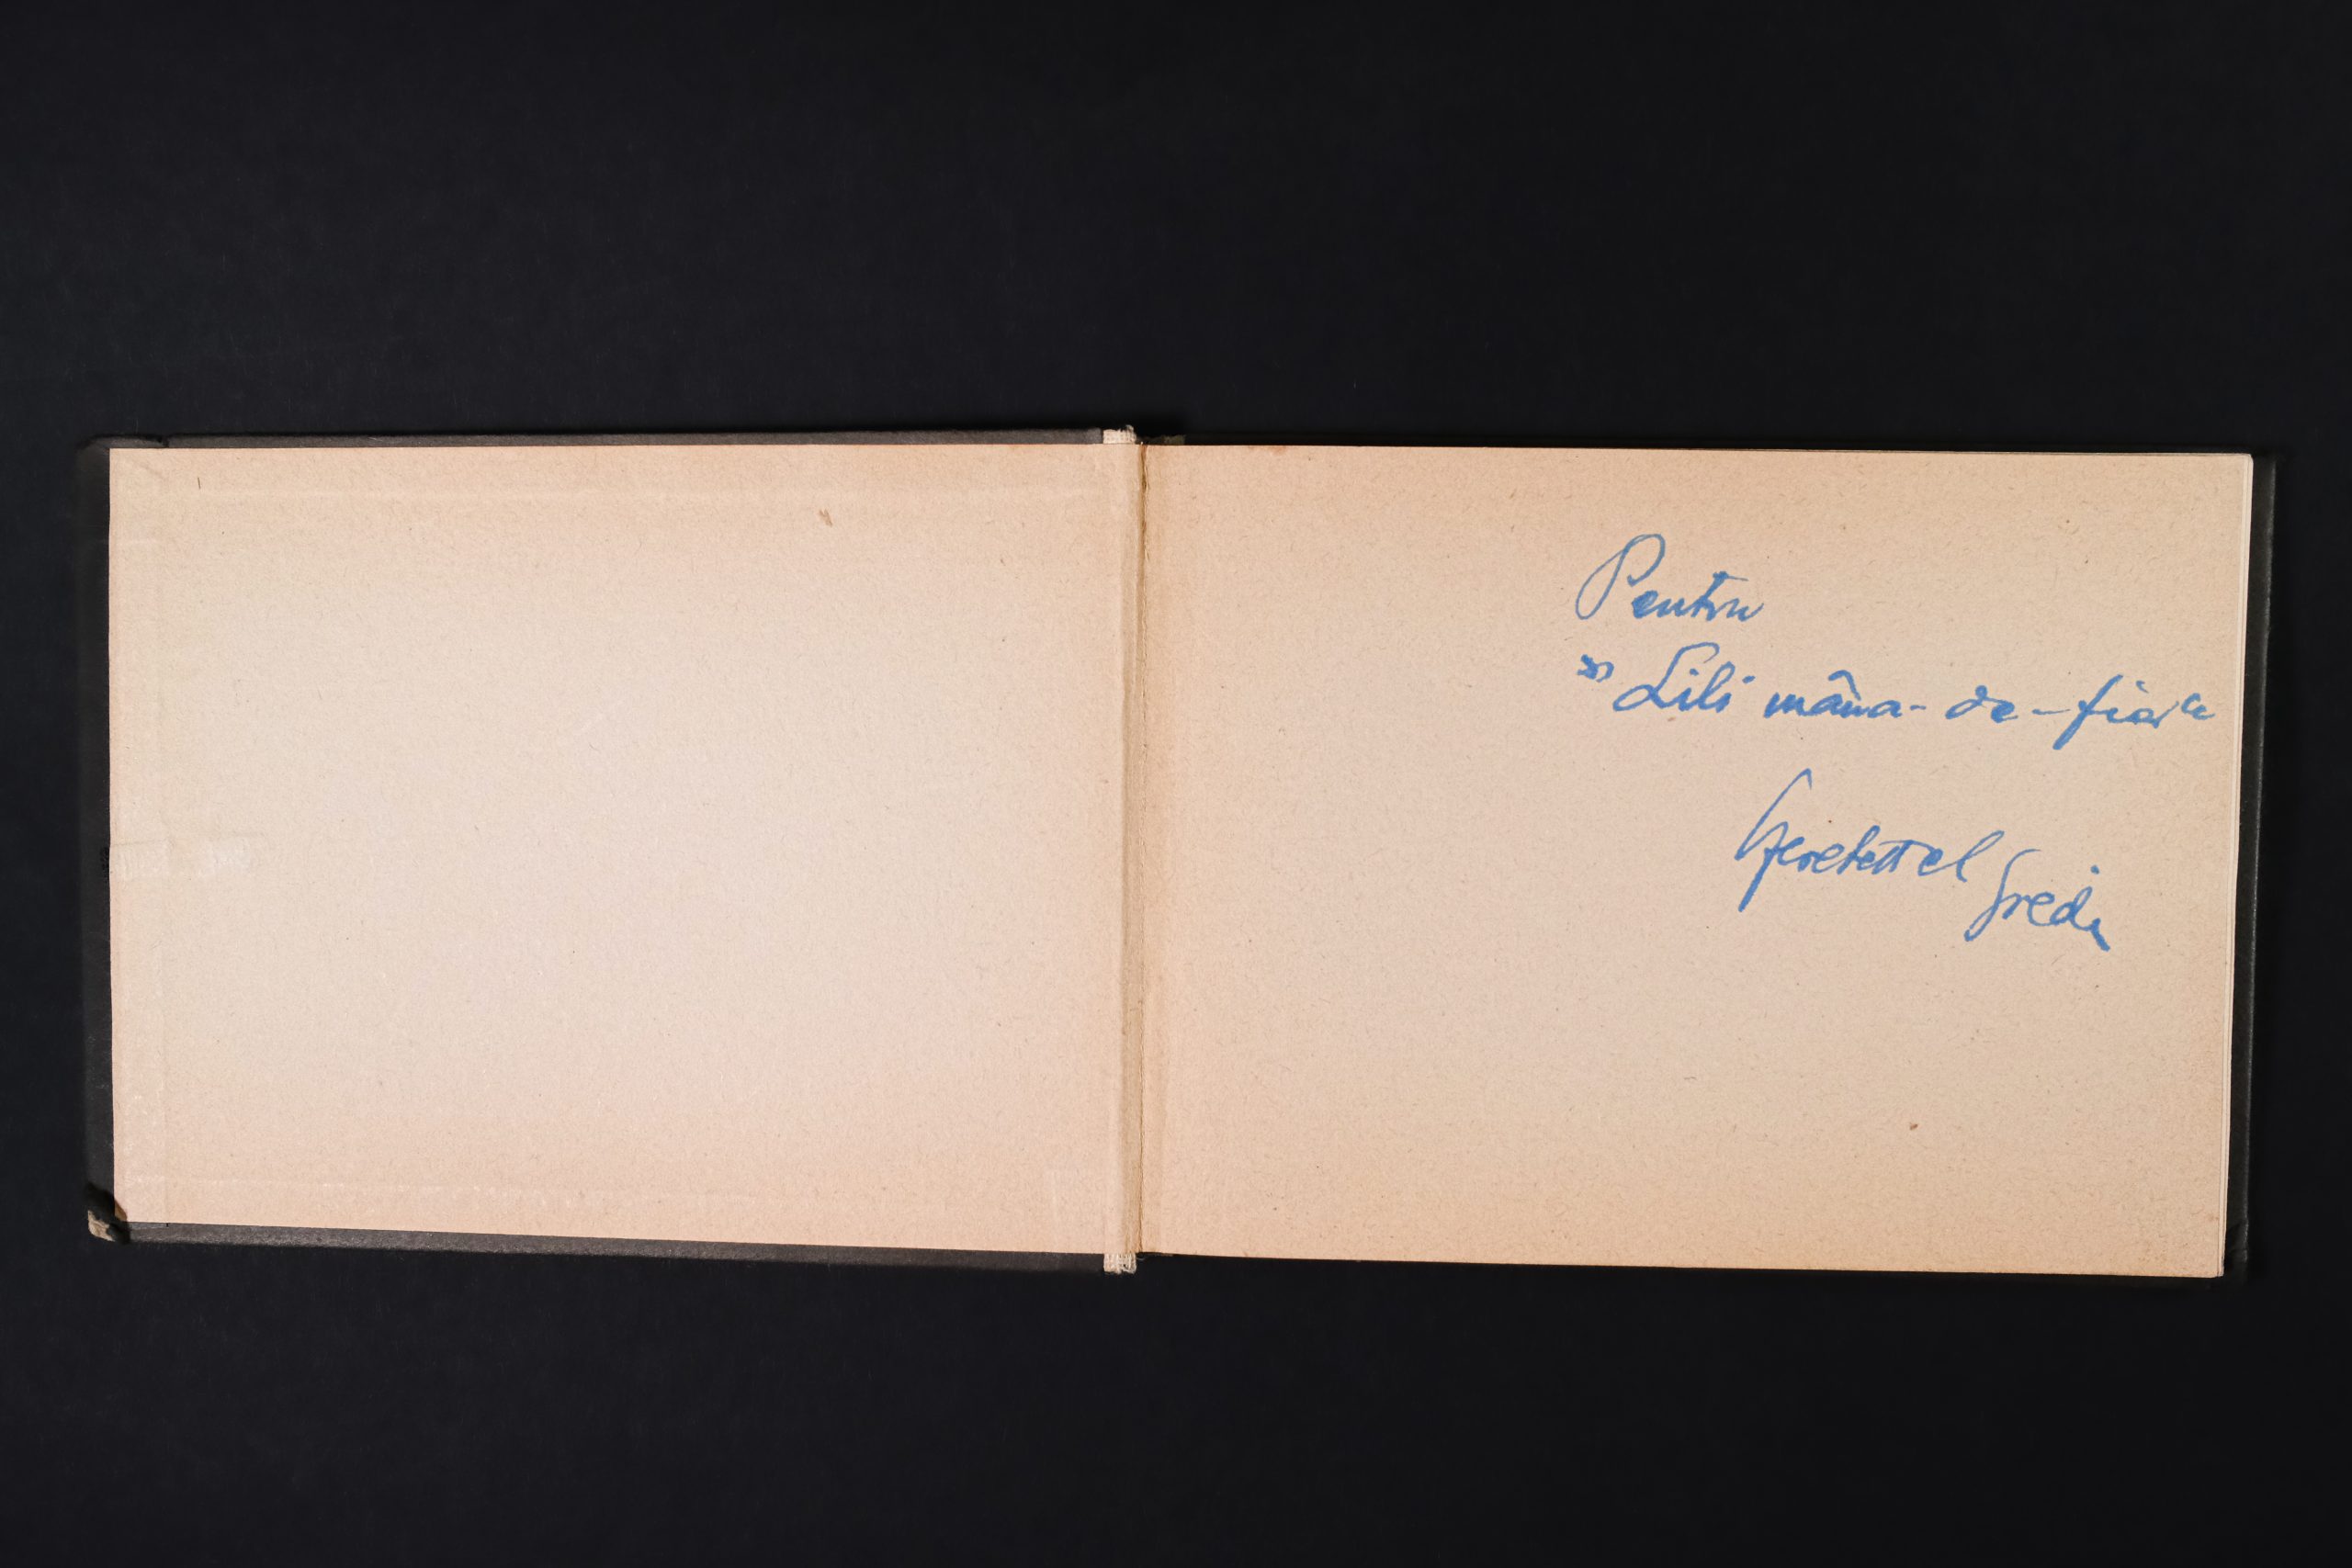 Pentru
"Lili mâna-de-fier"
Szeretettel
Fredi